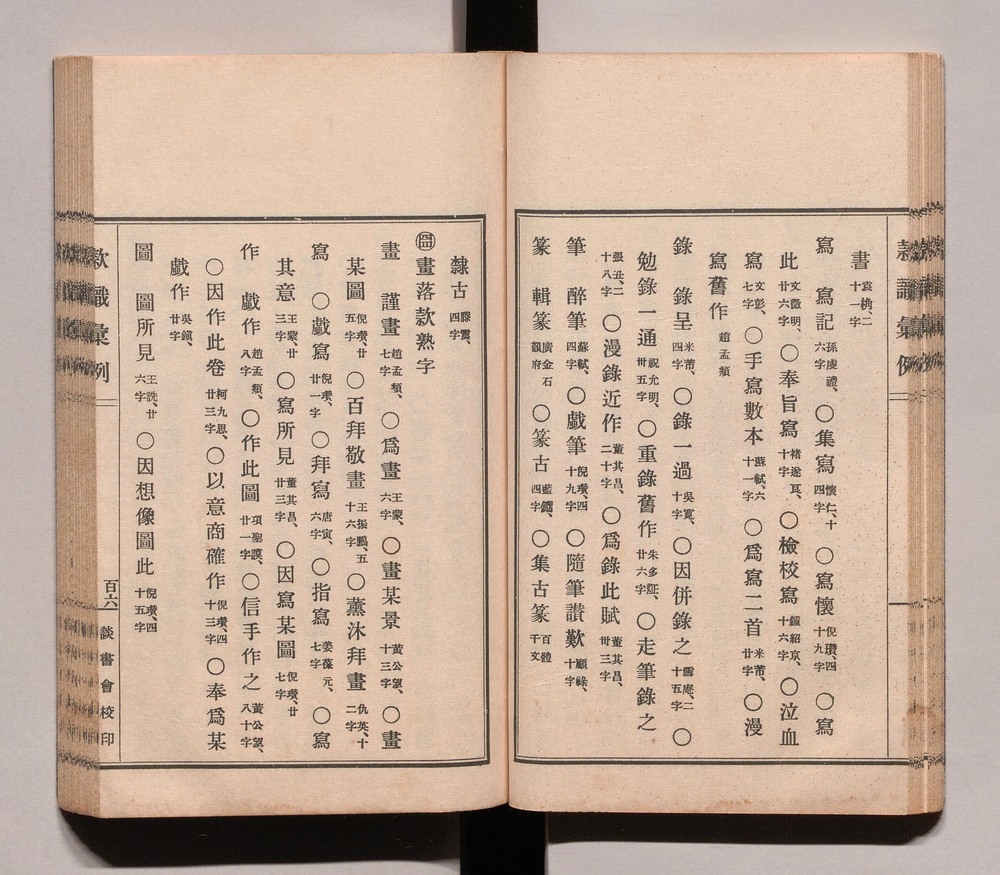 書 袁桷、二十一字
寫 寫記 孫虔禮、六字 〇集寫 懷仁、十四字 〇寫懷 倪瓚、四十九字 〇寫
此 文徵明、廿六字 〇奉旨寫 褚遂良、七字 〇檢校寫 鍾紹京、十六字 〇泣血
寫 文彭、七字 〇手寫數本 蘇軾、六十一字 〇爲寫二首 米芾、廿字 〇漫
寫舊作 趙孟頫
錄 錄呈 米芾、四字 〇錄一過 吳寬、十字 〇因併錄之 雪庵、二十五字 〇
勉錄一通 祝允明、卅五字 〇重錄舊作 朱多炡、廿六字 〇走筆錄之
張丑、二十八字 〇漫錄近作 董其昌、二十字 〇爲錄此賦 董其昌、卌三字
筆 醉筆 蘇軾、四字 〇戲筆 倪瓚、四十九字 〇隨筆讚歎 顧祿、十字
篆 輯篆 廣金石韻府 〇篆古 藍鑭、四字 〇集古篆 百體千文
隸古 滕震、四字
畫落款熟字
畫 謹畫 趙孟頫、七字 〇爲畫 王蒙、六字 〇畫某景 黃公望、十三字 〇畫
某圖 倪瓚、廿五字 〇百拜敬畫 王振鵬、五十六字 〇薰沐拜畫 仇英、十二字
寫 〇戲寫 倪瓚、廿一字 〇拜寫 唐寅、六字 〇指寫 姜葆元、七字 〇寫
其意 王蒙、廿三字 〇寫所見 董其昌、廿三字 〇因寫某圖 倪瓚、廿七字
作 戲作 趙孟頫、八字 〇作此圖 項聖謨、廿一字 〇信手作之 黃公望、八十字
〇因作此卷 柯九思、卅三字 〇以意商確作 倪瓚、四十三字 〇奉爲某
戲作 吳鎮、廿字
圖 圖所見 王詵、廿六字 〇因想像圖此 倪瓚、四十五字
款識彙例
百六
談書會校印